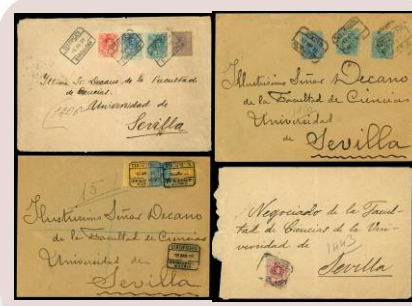 Illmo Sr. Decano de la Facultad
de Ciencias.
Universidad de
Sevilla
Illustrisimo Señor Decano
de la Facultad de Ciencias
Universidad
de Sevilla
15
Illustrisimo Señor Decano
de la Facultad de Ciencias
Universidad de
Sevilla
Negociado de la Facul-
tad de Ciencias de la Uni-
versidad de
Sevilla